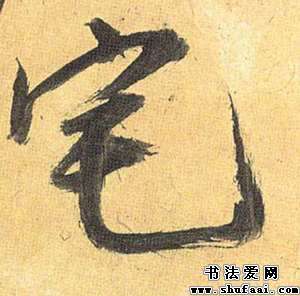 宅
书法爱网
www.shufaai.com